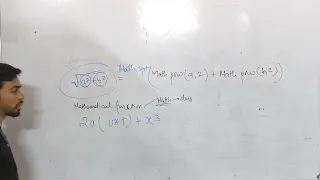 √a²+b² = Math sqrt (Math pow(a, 2) + Math pow(b, 2)
Mathematical function Math class
2x( ) + x³